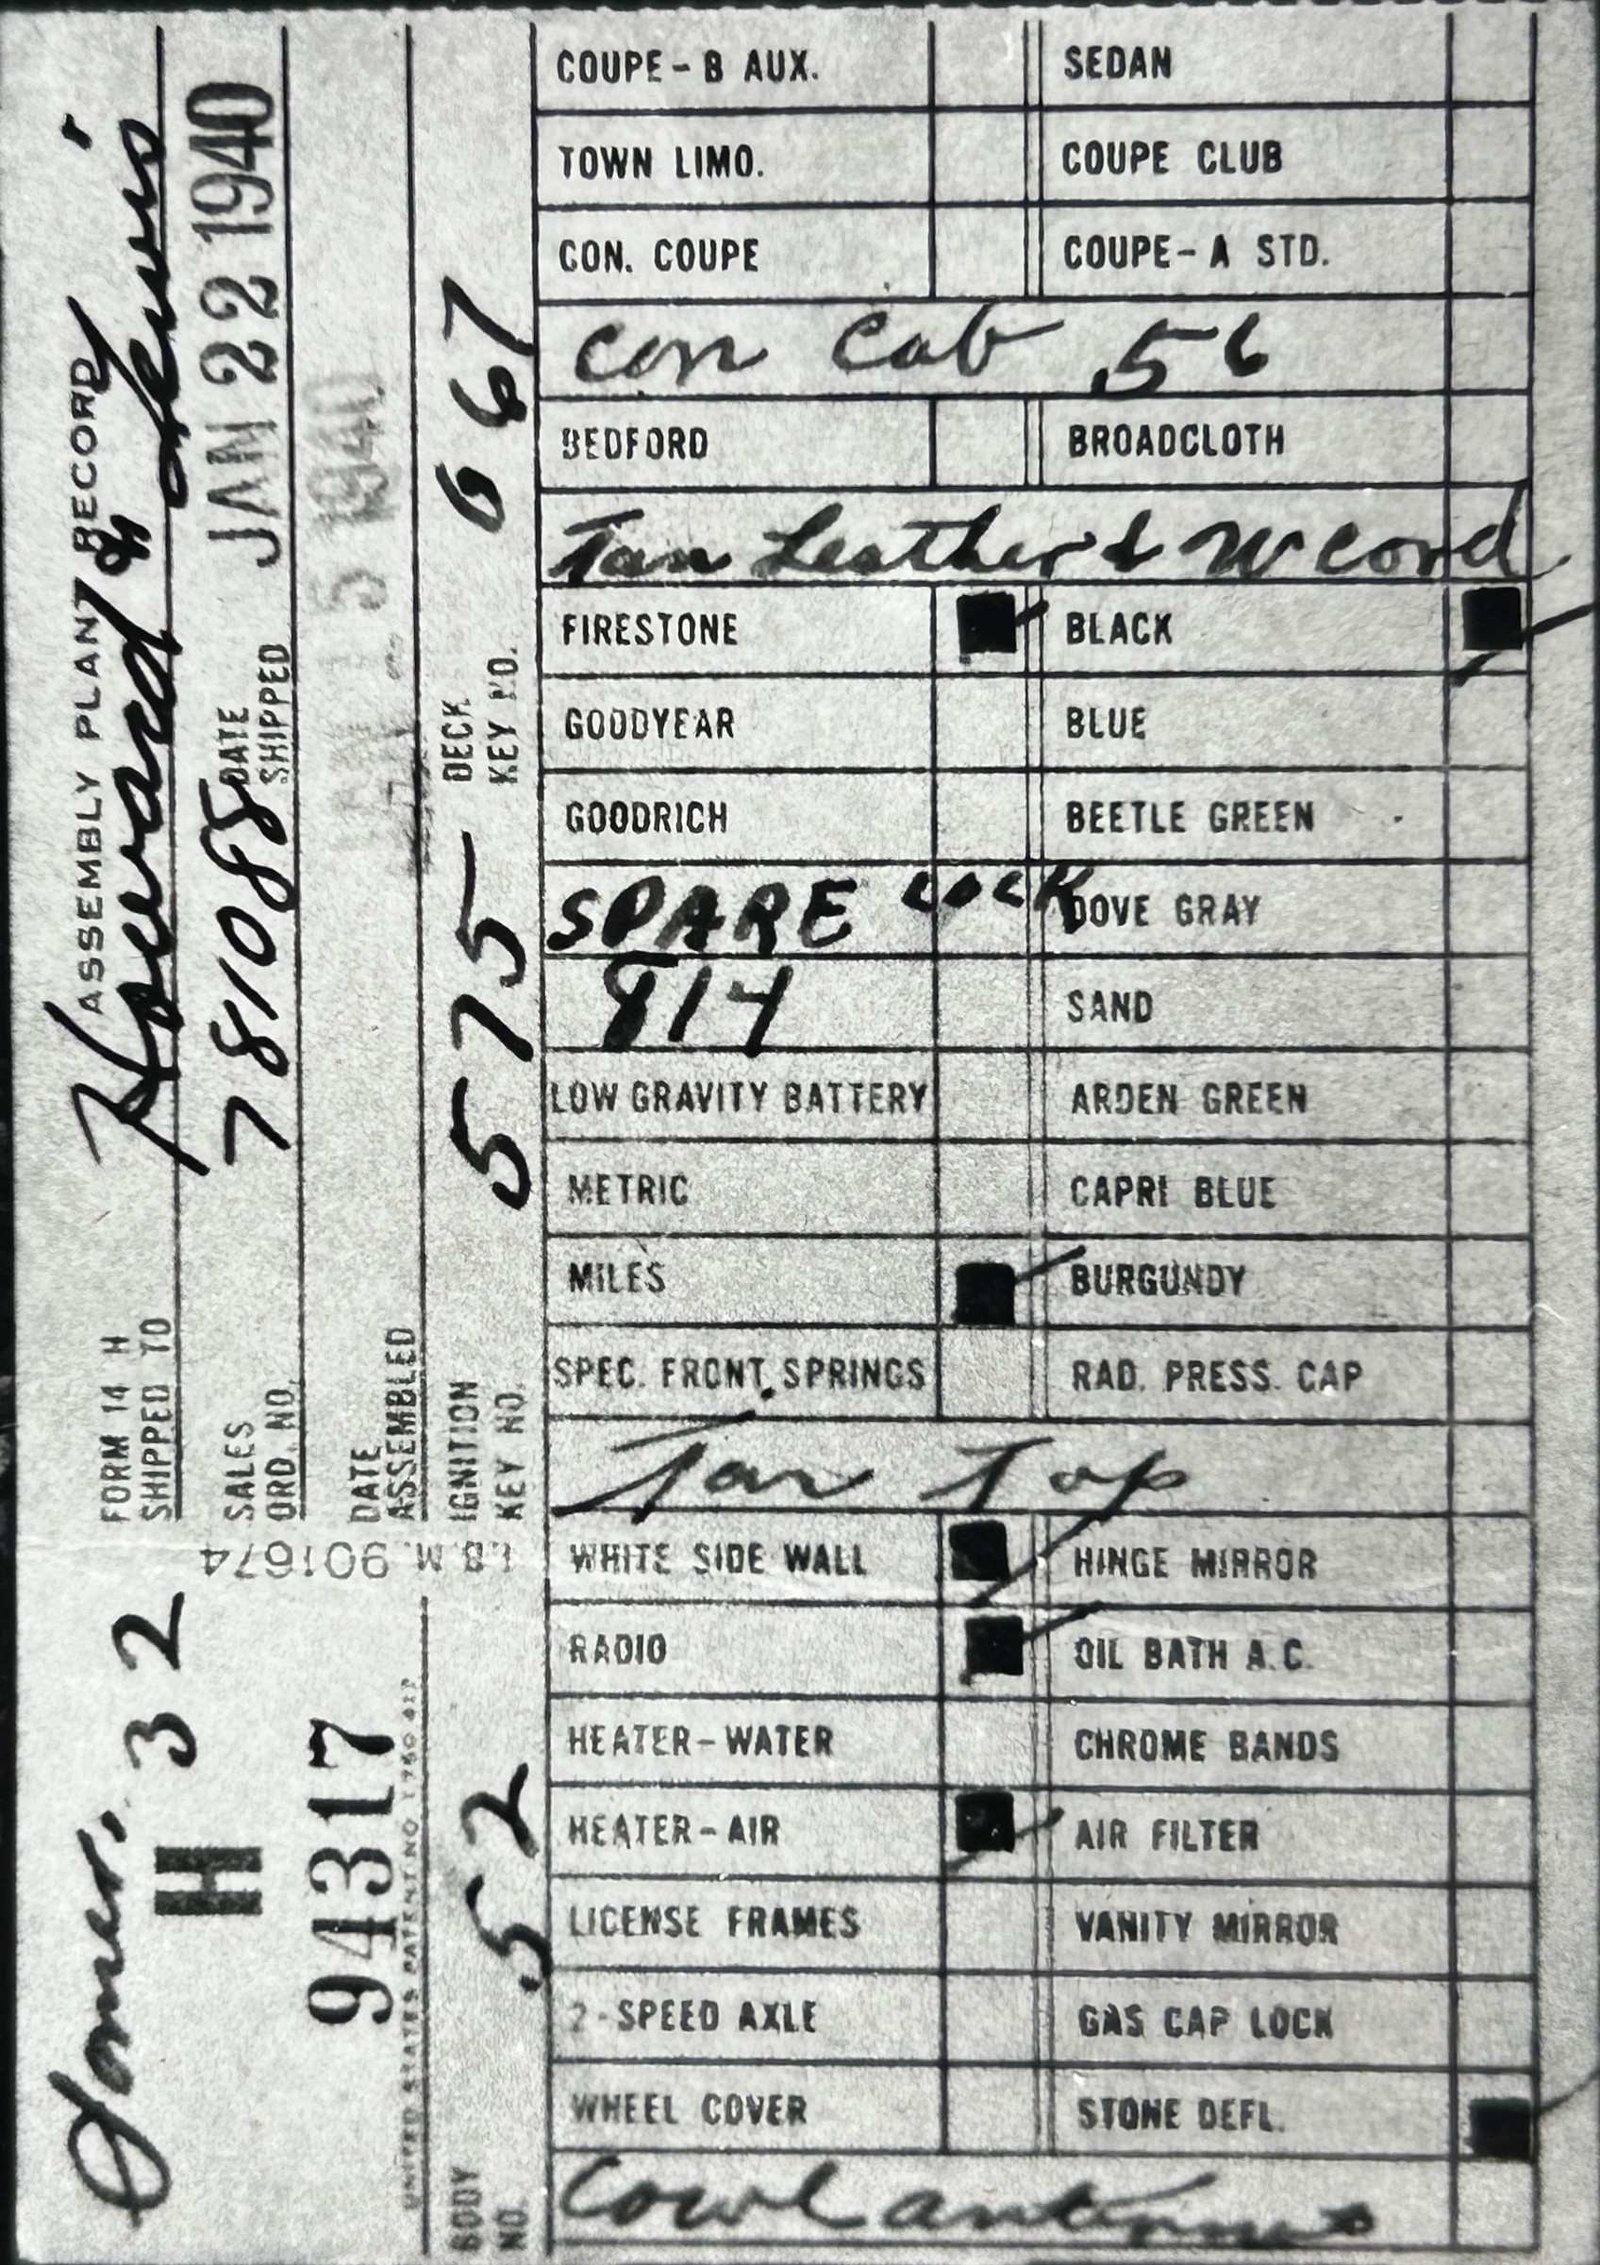 ASSEMBLY PLANT RECORD
FORM 14 H
SHIPPED TO
Howard & Lewis
SALES
ORD. NO.
781088
DATE
SHIPPED
JAN 22 1940
DATE
ASSEMBLED
JAN 15 1940
IGNITION
KEY NO.
575
DECK
KEY NO.
667
I.B.M. 901674
32
H
94317
UNITED STATES PATENT NO 1.780.
BODY
NO.
52
COUPE - B AUX. SEDAN
TOWN LIMO. COUPE CLUB
CON. COUPE COUPE - A STD.
Con Cab 56
BEDFORD BROADCLOTH
Tan Leather & W Cord
FIRESTONE BLACK
GOODYEAR BLUE
GOODRICH BEETLE GREEN
SPARE LOCK DOVE GRAY
814 SAND
LOW GRAVITY BATTERY ARDEN GREEN
METRIC CAPRI BLUE
MILES BURGUNDY
SPEC. FRONT SPRINGS RAD. PRESS. CAP
Tan Top
WHITE SIDE WALL HINGE MIRROR
RADIO OIL BATH A.C.
HEATER - WATER CHROME BANDS
HEATER - AIR AIR FILTER
LICENSE FRAMES VANITY MIRROR
2 - SPEED AXLE GAS CAP LOCK
WHEEL COVER STONE DEFL.
Cowl antenna